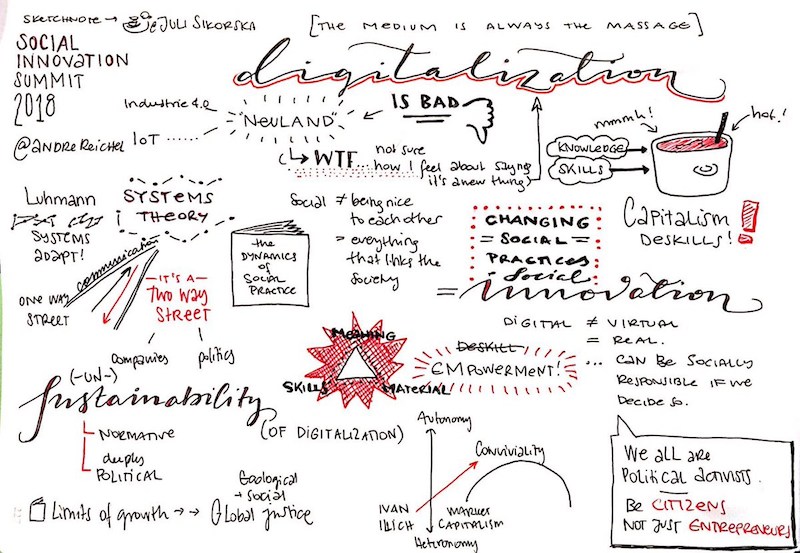 SKETCHNOTE → @JULI SIKORSKA
[THE MEDIUM IS ALWAYS THE MASSAGE]
SOCIAL
INNOVATION
SUMMIT
2018
@andrereichel
digitalization
Industrie 4.0
IoT ......
"NEULAND"
IS BAD
WTF... not sure
how I feel about saying
it's a new thing)
mmmh!
hot!
KNOWLEDGE
SKILLS
Capitalism
DESKILLS!
Luhmann
SYSTEMS
ADAPT!
SYSTEMS
THEORY
communication
ONE WAY
STREET
—IT'S A—
TWO WAY
STREET
companies
politics
the
DYNAMICS
of
SOCIAL
PRACTICE
Social ≠ being nice
to each other
= everything
that links the
society
CHANGING
= SOCIAL =
PRACTICES
= Social
innovation
DIGITAL ≠ VIRTUAL
= REAL.
... CAN BE SOCIALLY
RESPONSIBLE IF WE
DECIDE SO.
MEANING
SKILLS
MATERIAL
DESKILL
EMPOWERMENT!
(-UN-)
sustainability
(OF DIGITALIZATION)
NORMATIVE
deeply
POLITICAL
Limits of growth → → Global justice
Ecological
→ social
Autonomy
Conviviality
IVAN
ILICH
MARKET
CAPITALISM
Heteronomy
We all are
Political activists.
Be CITIZENS
NOT JUST ENTREPRENEURS